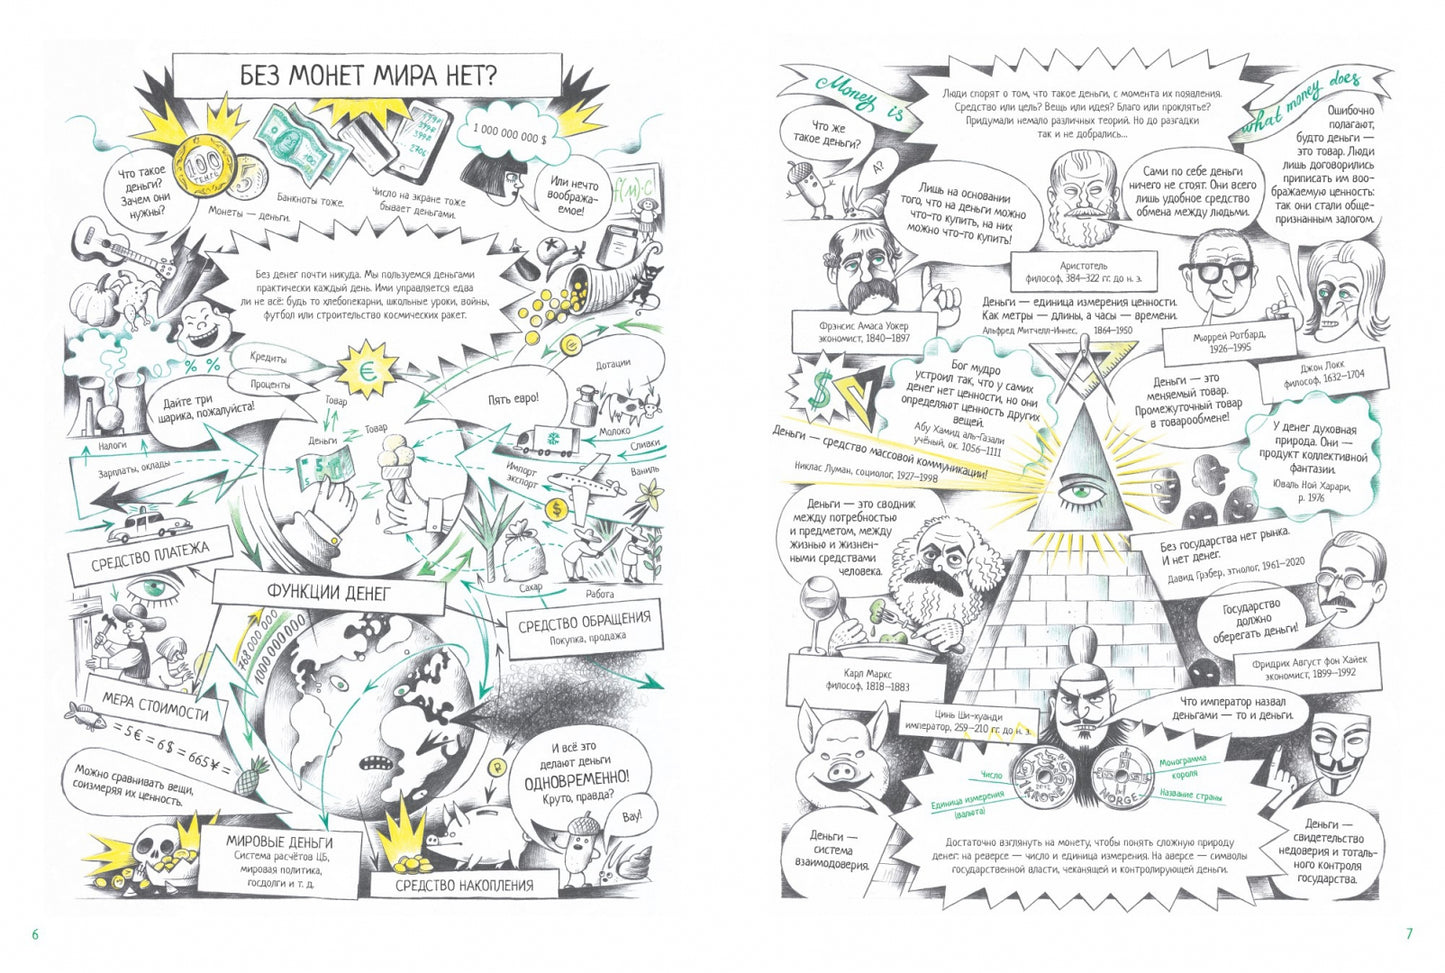 БЕЗ МОНЕТ МИРА НЕТ?
Что такое
деньги?
Зачем они
нужны?
100
ТЕНГЕ
5
100
Монеты — деньги.
Банкноты тоже.
Число на экране тоже
бывает деньгами.
1 000 000 000 $
Или нечто
вообража-
емое!
Без денег почти никуда. Мы пользуемся деньгами
практически каждый день. Ими управляется едва
ли не всё: будь то хлебопекарни, школьные уроки, войны,
футбол или строительство космических ракет.
% %
Кредиты
Проценты
€
€
Дотации
Дайте три
шарика, пожалуйста!
Товар
Пять евро!
Деньги
Товар
5
Молоко
Сливки
Налоги
Зарплаты, оклады
Импорт
экспорт
Ваниль
$
СРЕДСТВО ПЛАТЕЖА
ФУНКЦИИ ДЕНЕГ
Сахар
Работа
СРЕДСТВО ОБРАЩЕНИЯ
Покупка, продажа
768 000 000
1000 000 000
МЕРА СТОИМОСТИ
= 5 € = 6 $ = 665 ¥ =
Можно сравнивать вещи,
соизмеряя их ценность.
₽
И всё это
делают деньги
ОДНОВРЕМЕННО!
Круто, правда?
Вау!
МИРОВЫЕ ДЕНЬГИ
Система расчётов ЦБ,
мировая политика,
госдолги и т. д.
СРЕДСТВО НАКОПЛЕНИЯ
6
Money is
what money does
Люди спорят о том, что такое деньги, с момента их появления.
Средство или цель? Вещь или идея? Благо или проклятье?
Придумали немало различных теорий. Но до разгадки
так и не добрались...
Что же
такое деньги?
А?
Лишь на основании
того, что на деньги можно
что-то купить, на них
можно что-то купить!
Фрэнсис Амаса Уокер
экономист, 1840–1897
Сами по себе деньги
ничего не стоят. Они всего
лишь удобное средство
обмена между людьми.
Аристотель
философ, 384–322 гг. до н. э.
Ошибочно
полагают,
будто деньги —
это товар. Люди
лишь договорились
приписать им воо-
бражаемую ценность:
так они стали обще-
признанным залогом.
Деньги — единица измерения ценности.
Как метры — длины, а часы — времени.
Альфред Митчелл-Иннес, 1864–1950
Мюррей Ротбард,
1926–1995
Джон Локк
философ, 1632–1704
$
Бог мудро
устроил так, что у самих
денег нет ценности, но они
определяют ценность других
вещей.
Абу Хамид аль-Газали
учёный, ок. 1056–1111
Деньги — это
меняемый товар.
Промежуточный товар
в товарообмене!
У денег духовная
природа. Они —
продукт коллективной
фантазии.
Юваль Ной Харари,
р. 1976
Деньги — средство массовой коммуникации!
Никлас Луман, социолог, 1927–1998
Деньги — это сводник
между потребностью
и предметом, между
жизнью и жизнен-
ными средствами
человека.
Карл Маркс
философ, 1818–1883
Без государства нет рынка.
И нет денег.
Давид Грэбер, этнолог, 1961–2020
Государство
должно
оберегать деньги!
Фридрих Август фон Хайек
экономист, 1899–1992
Цинь Ши-хуанди
император, 259–210 гг. до н. э.
Что император назвал
деньгами — то и деньги.
Число
Единица измерения
(валюта)
1 KRONE
NORGE
Монограмма
короля
Название страны
Деньги —
система
взаимодоверия.
Достаточно взглянуть на монету, чтобы понять сложную природу
денег: на реверсе — число и единица измерения. На аверсе — символы
государственной власти, чеканящей и контролирующей деньги.
Деньги —
свидетельство
недоверия и тоталь-
ного контроля
государства.
7